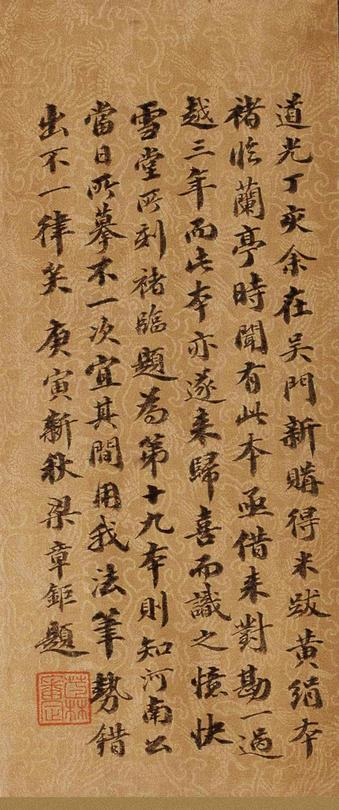 道光丁亥余在吴門新購得米跋黄絹本
褚临蘭亭時聞有此本亟借来對勘一過
越三年而此本亦遂来歸喜而識之憶快
雪堂所刻褚臨題為第十九本則知河南公
當日所摹不一次宜其間用我法筆勢錯
出不一律矣庚寅新秋梁章鉅題
茞林審定